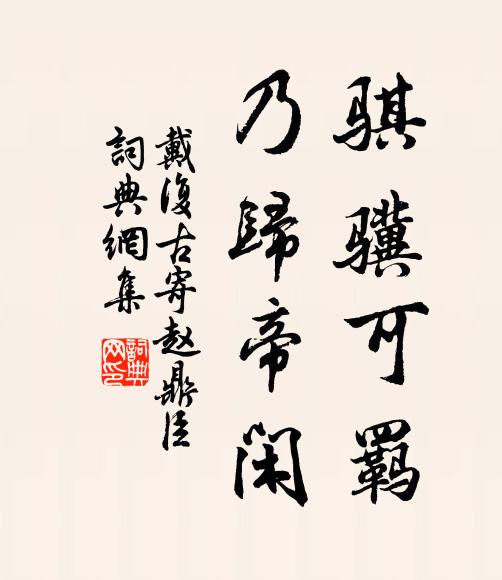 骐骥可羁
乃歸帝闲
戴復古寄赵鼎臣
詞典網集
詞典网印